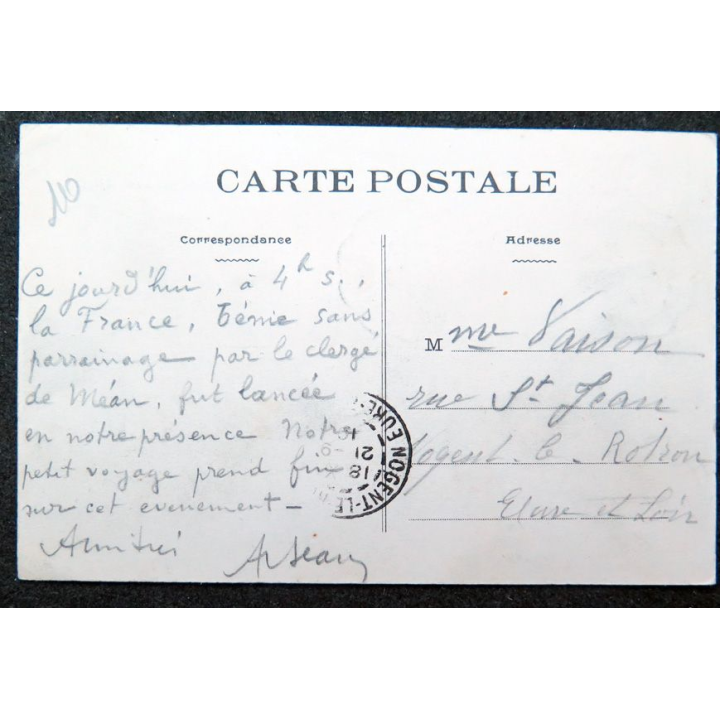 110
CARTE POSTALE
Correspondance
Adresse
Ce jourd'hui, à 4h s.,
la France, bénie sans
parrainage par le clergé
de Méan, fut lancée
en notre présence Notre
petit voyage prend fin
sur cet evenement -
Mme Vaison
rue St Jean
Nogent le Rotrou
Eure et Loir
NOGENT-LE-
EURE-
18
21